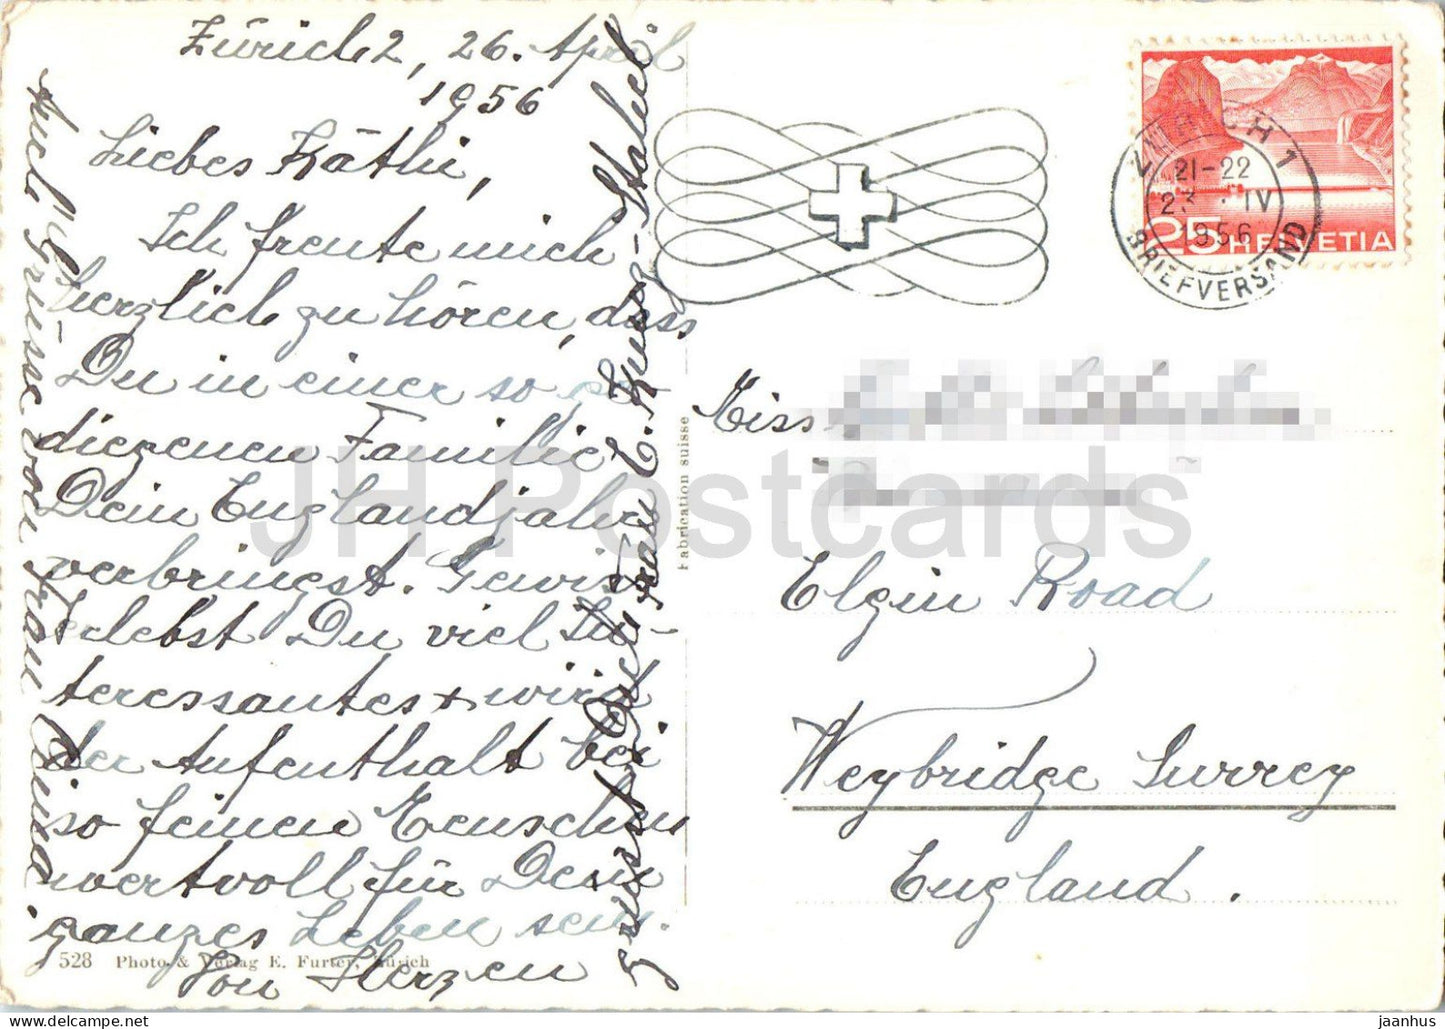 Zürich 2, 26. April
1956
Liebes Käthi,
Ich freute mich
herzlich zu hören, dass
Du in einer so ge-
diegenen Familie
Dein Englandjahr
verbringst. Gewiss
erlebst Du viel In-
teressantes + wird
der Aufenthalt bei
so feinen Menschen
wertvoll für Dein
ganzes Leben sein.
Von Herzen
grüsst Dich Frau E. Kuser-Stahel
Auch Grüsse von Frau
528 Photo & Verlag E. Furter, Zürich
Fabrication suisse
ZÜRICH 1
21-22
IV
1956
BRIEFVERSAND
25 HELVETIA
Miss
Elgin Road
Weybridge Surrey
England.
JH Postcards
jaanhus
https://www.ebay.com/str/jaanhus